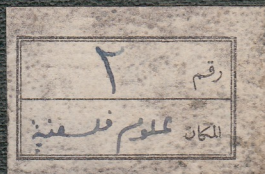 رقم ٢
المكان علوم فلسفية